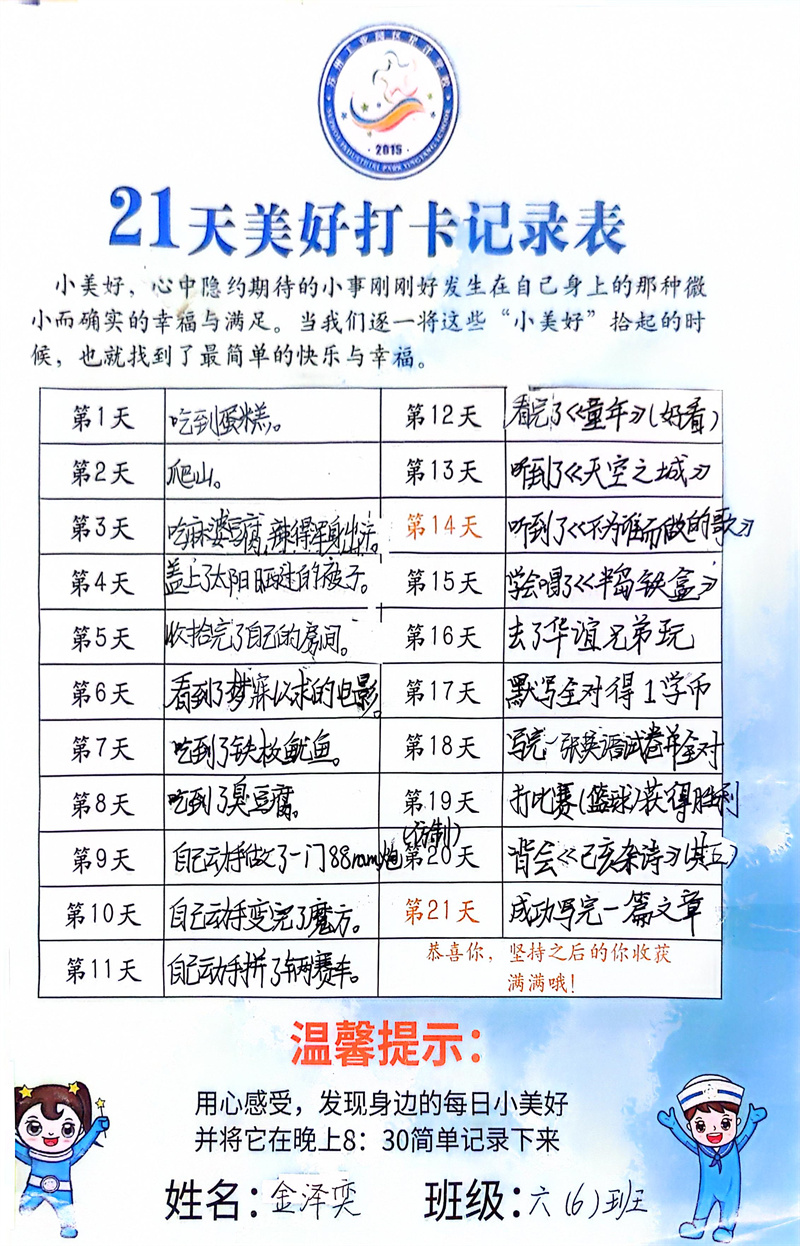 苏州工业园区
SUZHOU INDUSTRIAL PARK YINGYANG SCHOOL
· 2015 ·
21天美好打卡记录表
小美好，心中隐约期待的小事刚刚好发生在自己身上的那种微
小而确实的幸福与满足。当我们逐一将这些“小美好”拾起的时
候，也就找到了最简单的快乐与幸福。
第1天 吃到蛋糕。
第2天 爬山。
第3天 吃麻婆豆腐，辣得浑身出汗。
第4天 盖上了太阳晒过的被子。
第5天 收拾完了自己的房间。
第6天 看到了梦寐以求的电影。
第7天 吃到了铁板鱿鱼。
第8天 吃到了臭豆腐。
第9天 自己动手做了一门88mm炮(仿制)
第10天 自己动手变完了魔方。
第11天 自己动手拼了辆赛车。
第12天 看完了《童年》(好看)
第13天 听到了《天空之城》
第14天 听到了《不为谁而做的歌》
第15天 学会唱了《半岛铁盒》
第16天 去了华谊兄弟玩
第17天 默写全对得1学币
第18天 写完一张英语试卷并全对
第19天 打比赛(篮球)获得胜利
第20天 背会《己亥杂诗》(其五)
第21天 成功写完一篇文章
恭喜你，坚持之后的你收获
满满哦！
温馨提示：
用心感受，发现身边的每日小美好
并将它在晚上8：30简单记录下来
姓名：金泽奕 班级：六(6)班